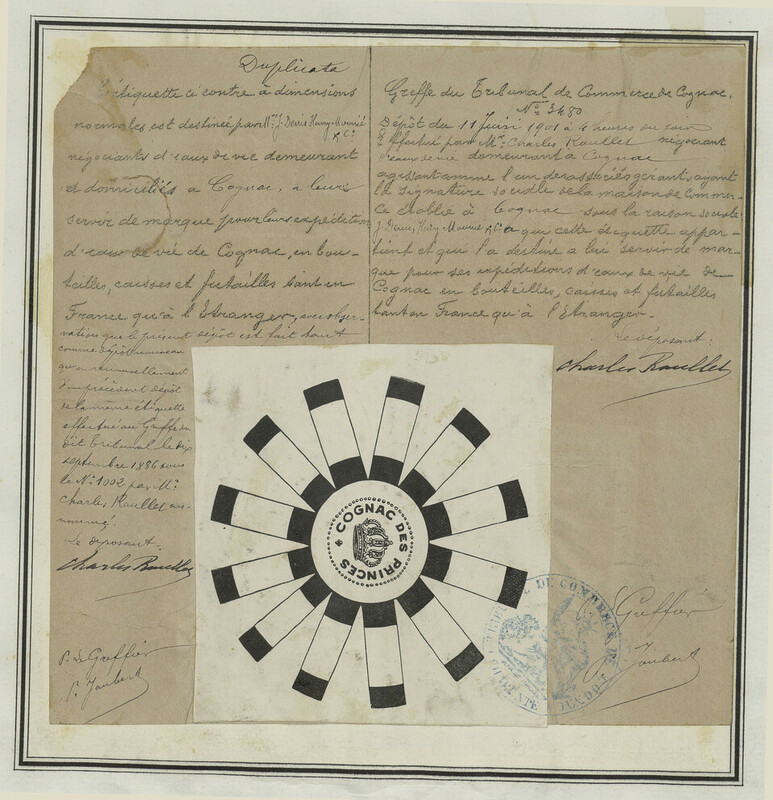 Duplicata
L'étiquette ci contre à dimensions
normales est destinée par Mrs J. Denis Henry-Mounié
& Cie
négociants d'eaux de vie demeurant
et domiciliés à Cognac, à leur
servir de marque pour leurs expéditions
d'eaux de vie de Cognac, en bou-
teilles, caisses et futailles tant en
France qu'à l'Etranger, avec obser-
vation que le présent dépôt est fait tant
comme dépôt nouveau
qu'en renouvellement
d'un précédent dépôt
de la même étiquette
effectué au Greffe du
dit Tribunal le dix
septembre 1886 sous
le No 1002 par Mr
Charles Raullet sus-
nommé
Le déposant
Charles Raullet
P. Le Greffier
P. Joubert
Greffe du Tribunal de Commerce de Cognac.
No 3480
Dépôt du 11 Juin 1901 à 4 heures du soir
Effectué par Mr Charles Raullet négociant
d'eaux de vie demeurant à Cognac
agissant comme l'un des associés gérants, ayant
la signature sociale de la maison de Commer-
ce établie à Cognac sous la raison sociale
J. Denis, Henry Mounié & Cie à qui cette étiquette appar-
tient et qui l'a destine à lui servir de mar-
que pour ses expéditions d'eaux de vie de
Cognac en bouteilles, caisses et futailles
tant en France qu'à l'Etranger.
Le déposant:
Charles Raullet
COGNAC DES PRINCES
TRIBUNAL DE COMMERCE DE
CHARENTE
Le Greffier
P. Joubert